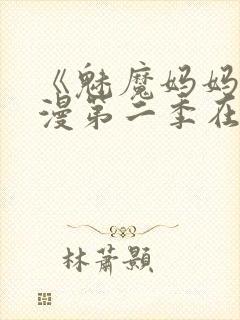 《魅魔妈妈
漫第二季在
林萧颢